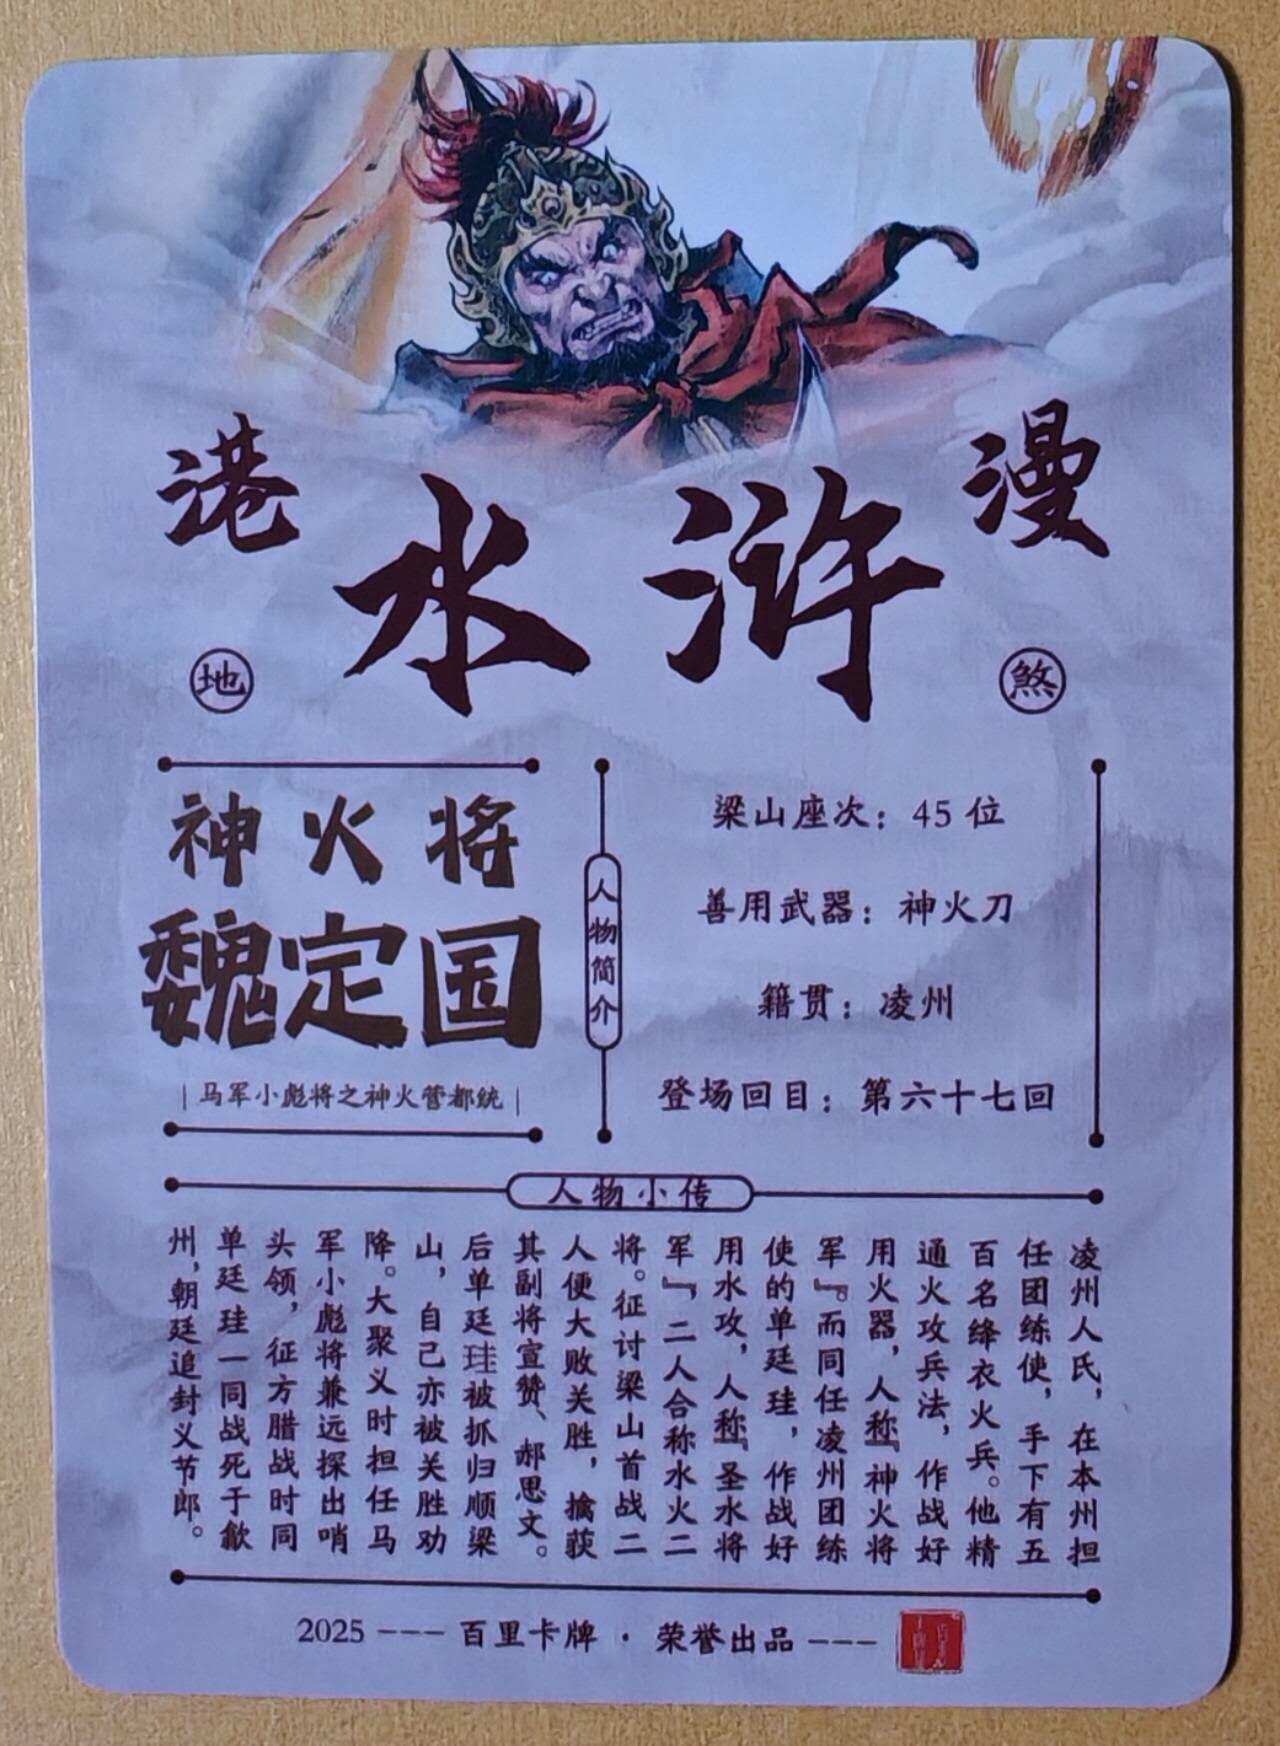 港 水浒 漫
地 煞
神火将
魏定国
马军小彪将之神火营都统
人物简介
梁山座次：45 位
善用武器：神火刀
籍贯：凌州
登场回目：第六十七回
人物小传
凌州人氏，在本州担
任团练使，手下有五
百名绛衣火兵。他精
通火攻兵法，作战好
用火器，人称『神火将
军』。而同任凌州团练
使的单廷珪，作战好
用水攻，人称『圣水将
军』，二人合称水火二
将。征讨梁山首战二
人便大败关胜，擒获
其副将宣赞、郝思文。
后单廷珪被抓归顺梁
山，自己亦被关胜劝
降。大聚义时担任马
军小彪将兼远探出哨
头领，征方腊战时同
单廷珪一同战死于歙
州，朝廷追封义节郎。
2025 --- 百里卡牌 · 荣誉出品 ---